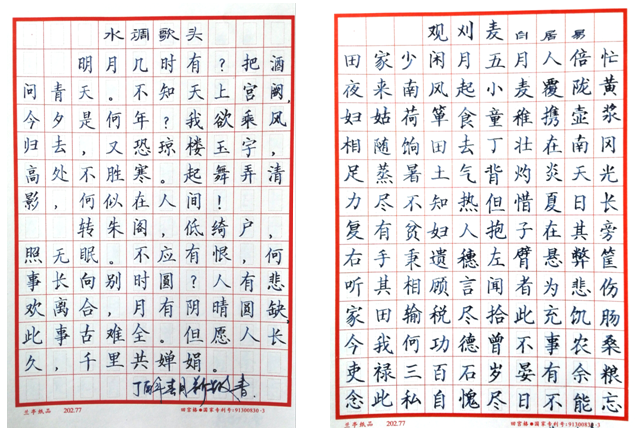 水调歌头
明月几时有？把酒
问青天。不知天上宫阙，
今夕是何年？我欲乘风
归去，又恐琼楼玉宇，
高处不胜寒。起舞弄清
影，何似在人间！
转朱阁，低绮户，
照无眠。不应有恨，何
事长向别时圆？人有悲
欢离合，月有阴晴圆缺，
此事古难全。但愿人长
久，千里共婵娟。
丁酉年
兰亭纸品 202.77 ★国家专利号:91300830·3
观刈麦 白居易
田家少闲月五月人倍忙
夜来南风起小麦覆陇黄
妇姑荷箪食童稚携壶浆
相随饷田去丁壮在南冈
足蒸暑土气背灼炎天光
力尽不知热但惜夏日长
复有贫妇人抱子在其旁
右手秉遗穗左臂悬弊筐
听其相顾言闻者为悲伤
家田输税尽拾此充饥肠
今我何功德曾不事农桑
吏禄三百石岁晏有余粮
念此私自愧尽日不能忘
兰亭纸品 202.77 ★国家专利号:91300830·3